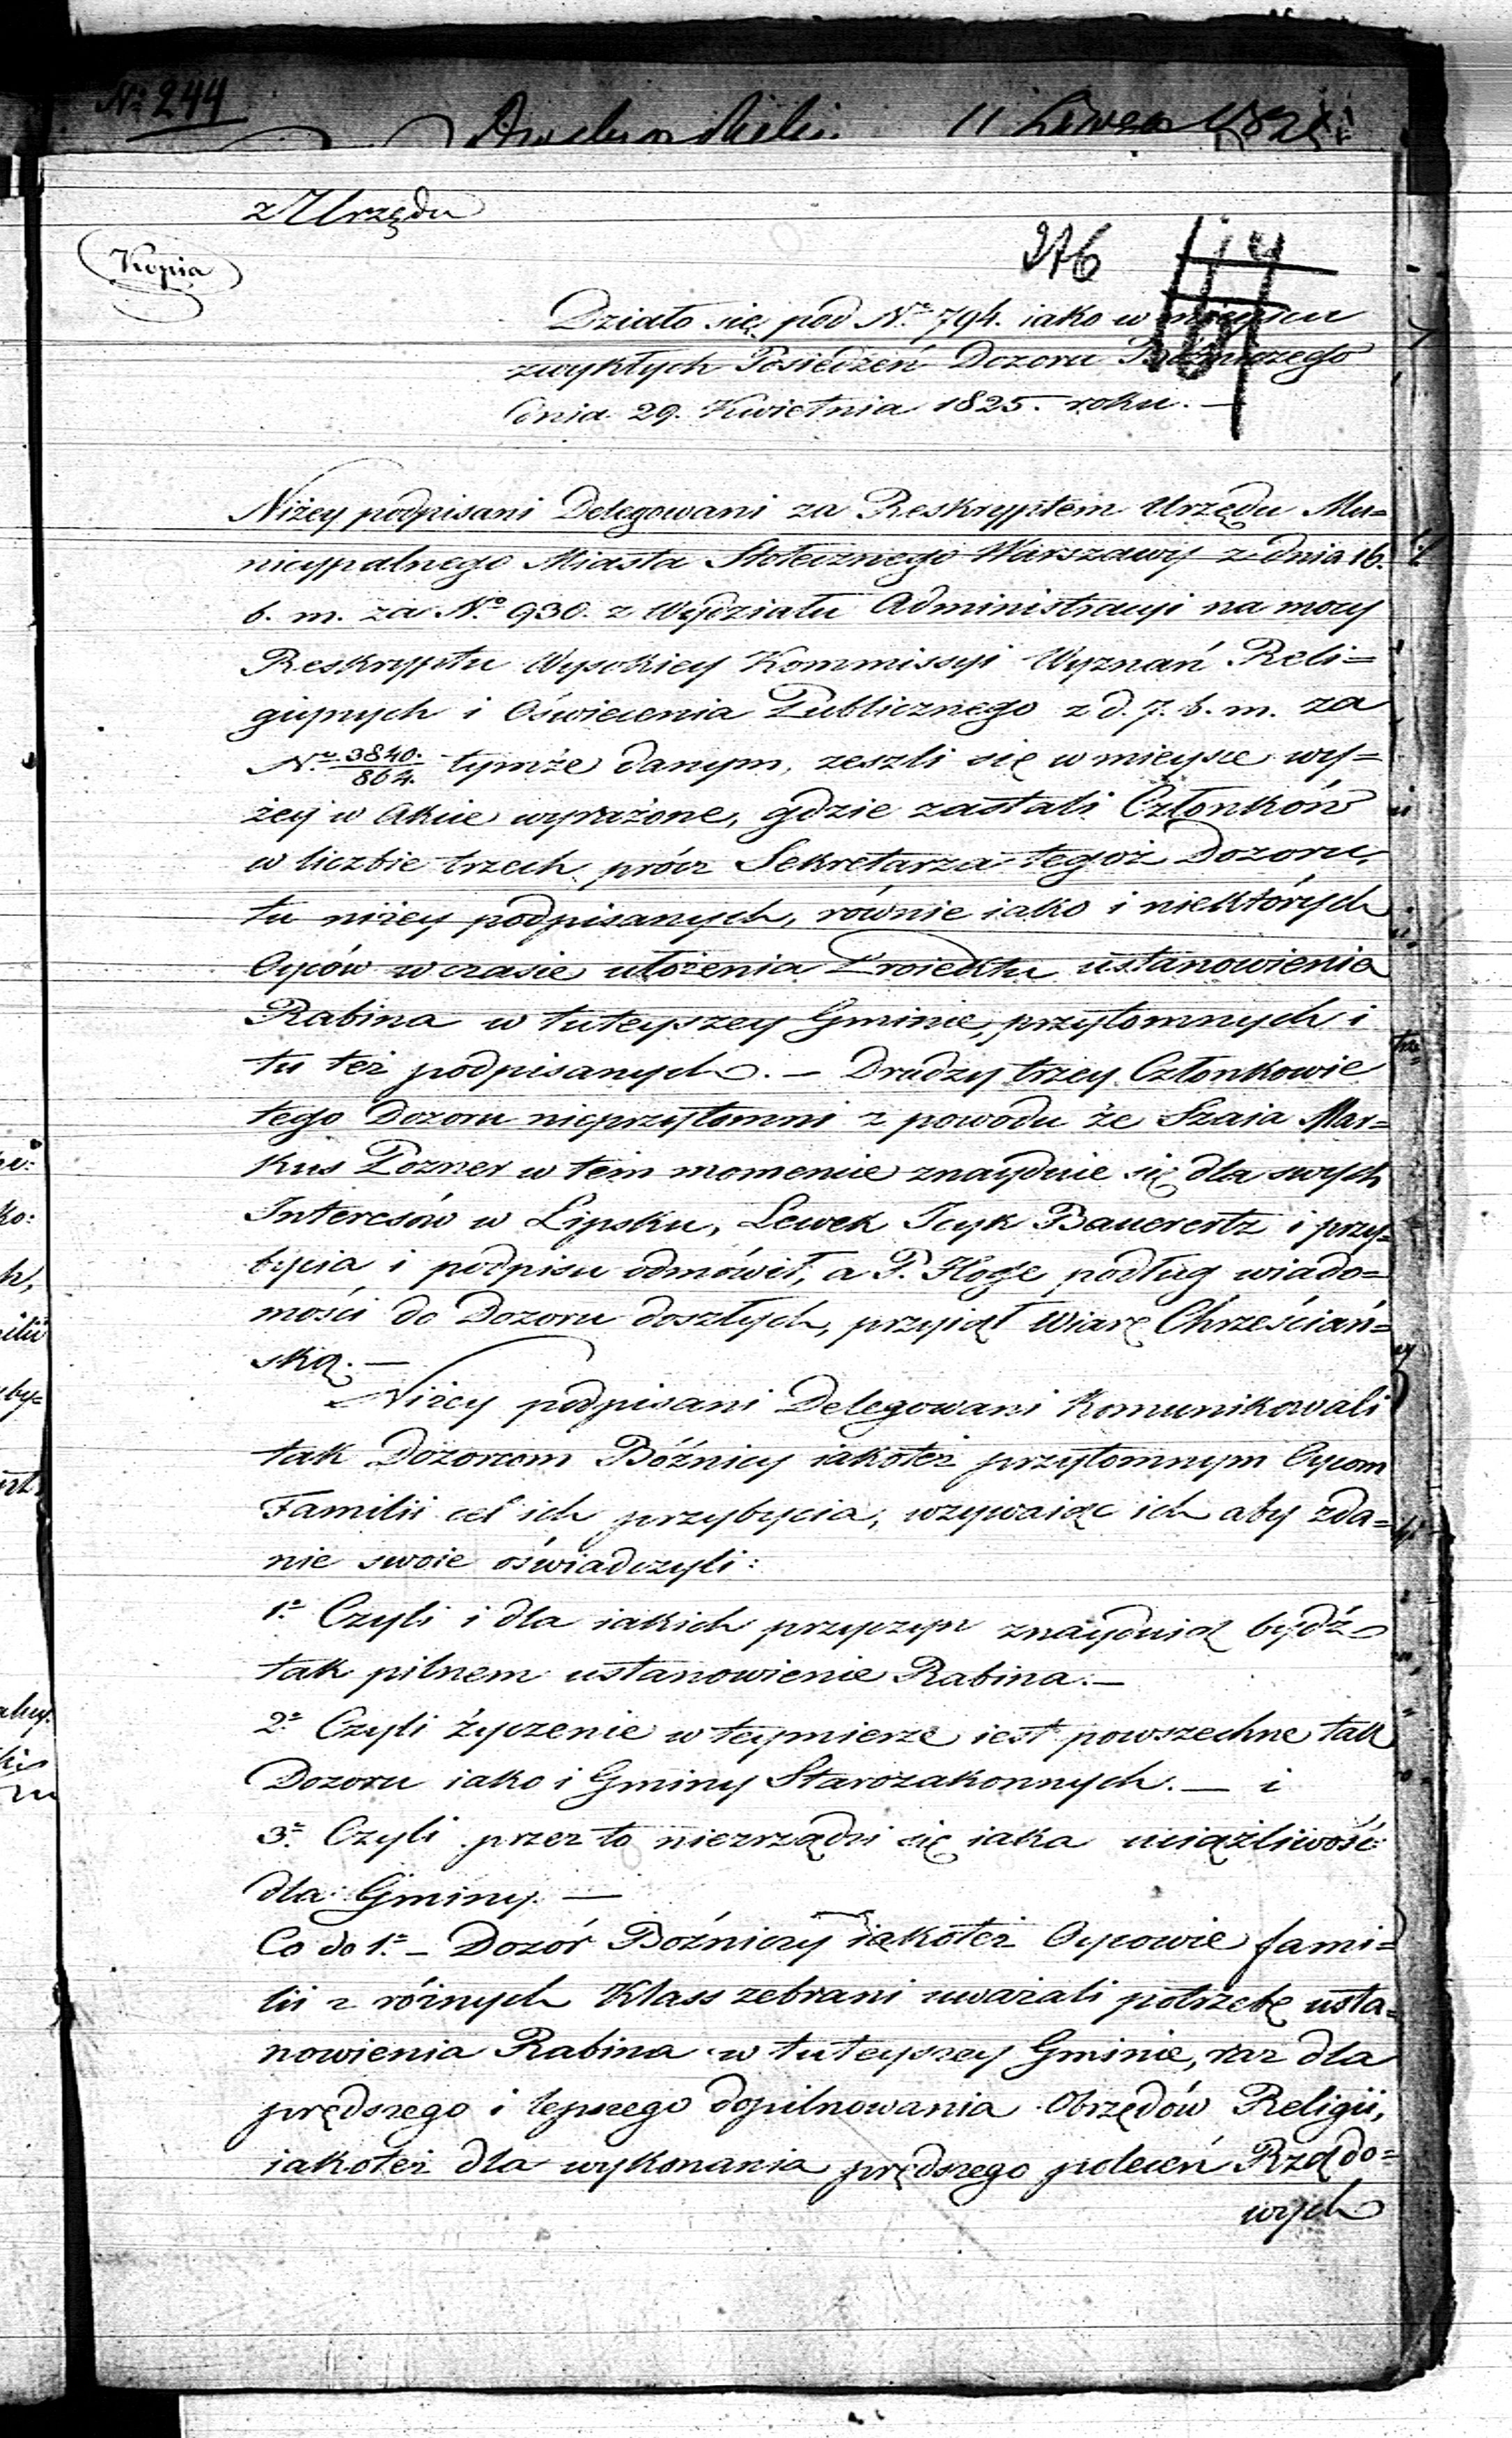 № 244
11 1825
z Urzędu
Kopia
276
Działo się pod N.º 794. iako w mieyscu
zwykłych Posiedzeń Dozoru Bożniczego
dnia 29. Kwietnia 1825. roku. —
Niżey podpisani Delegowani za Reskryptem Urzędu Mu=
nicypalnego Miasta Stołecznego Warszawy z dnia 16.
b. m. za N.º 930. z Wydziału Administracyi na mocy
Reskryptu Wysokiey Kommissyi Wyznań Reli=
giynych i Oświecenia Publicznego z d. 7. b. m. za
N.º 3840./864. tymże danym, zeszli się w mieysce wy=
żey w Akcie wyrażone, gdzie zastali Członków
w liczbie trzech prócz Sekretarza tegoż Dozoru,
tu niżey podpisanych, równie iako i niektórych
Oyców w czasie ułożenia Proiektu ustanowienia
Rabina w tuteyszey Gminie, przytomnych i
tu też podpisanych. — Drudzy trzey Członkowie
tego Dozoru nieprzytomni z powodu że Szaia Mar=
kus Pozner w tem momencie znayduie się dla swych
Interesów w Lipsku, Lewek Icyk Bauerertz i przy=
bycia i podpisu odmówił, a P. Hoge podług wiado=
mości do Dozoru doszłych, przyiął Wiarę Chrześciań=
ską. —
Niżey podpisani Delegowani Komunikowali
tak Dozorcom Bóżnicy iakoteż przytomnym Oycom
Familii cel ich przybycia, wzywaiąc ich aby zda=
nie swoie oświadczyli:
1.º Czyli i dla iakich przyczyn znayduią bydź
tak pilnem ustanowienie Rabina. —
2.º Czyli życzenie w teymierze iest powszechne tak
Dozoru iako i Gminy Starozakonnych. — i
3.º Czyli przez to niezrządzi się iaka uciążliwość
dla Gminy. —
Co do 1.º — Dozór Bożniczy iakoteż Oycowie fami=
lii z różnych Klass zebrani uważali potrzebę usta=
nowienia Rabina w tuteyszey Gminie, raz dla
prędszego i lepszego dopilnowania Obrzędów Religii,
iakoteż dla wykonania prędszego poleceń Rządo=
wych